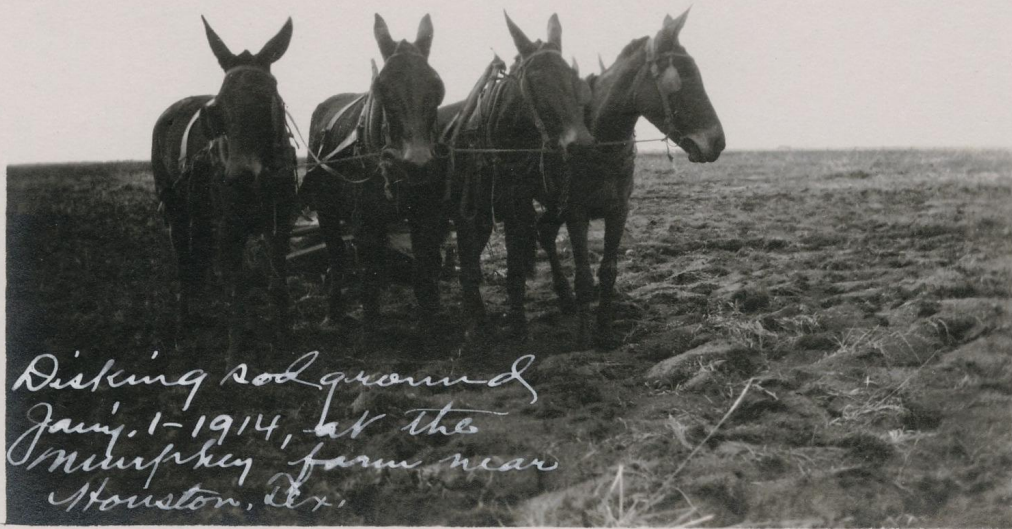 Disking sod ground
Jany. 1-1914, at the
Murphey farm near
Houston, Tex.